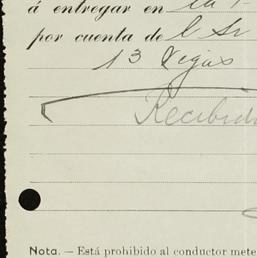 á entregar en la
por cuenta de l Sr
13 Vigas
Recibid
Nota. — Está prohibido al conductor mete